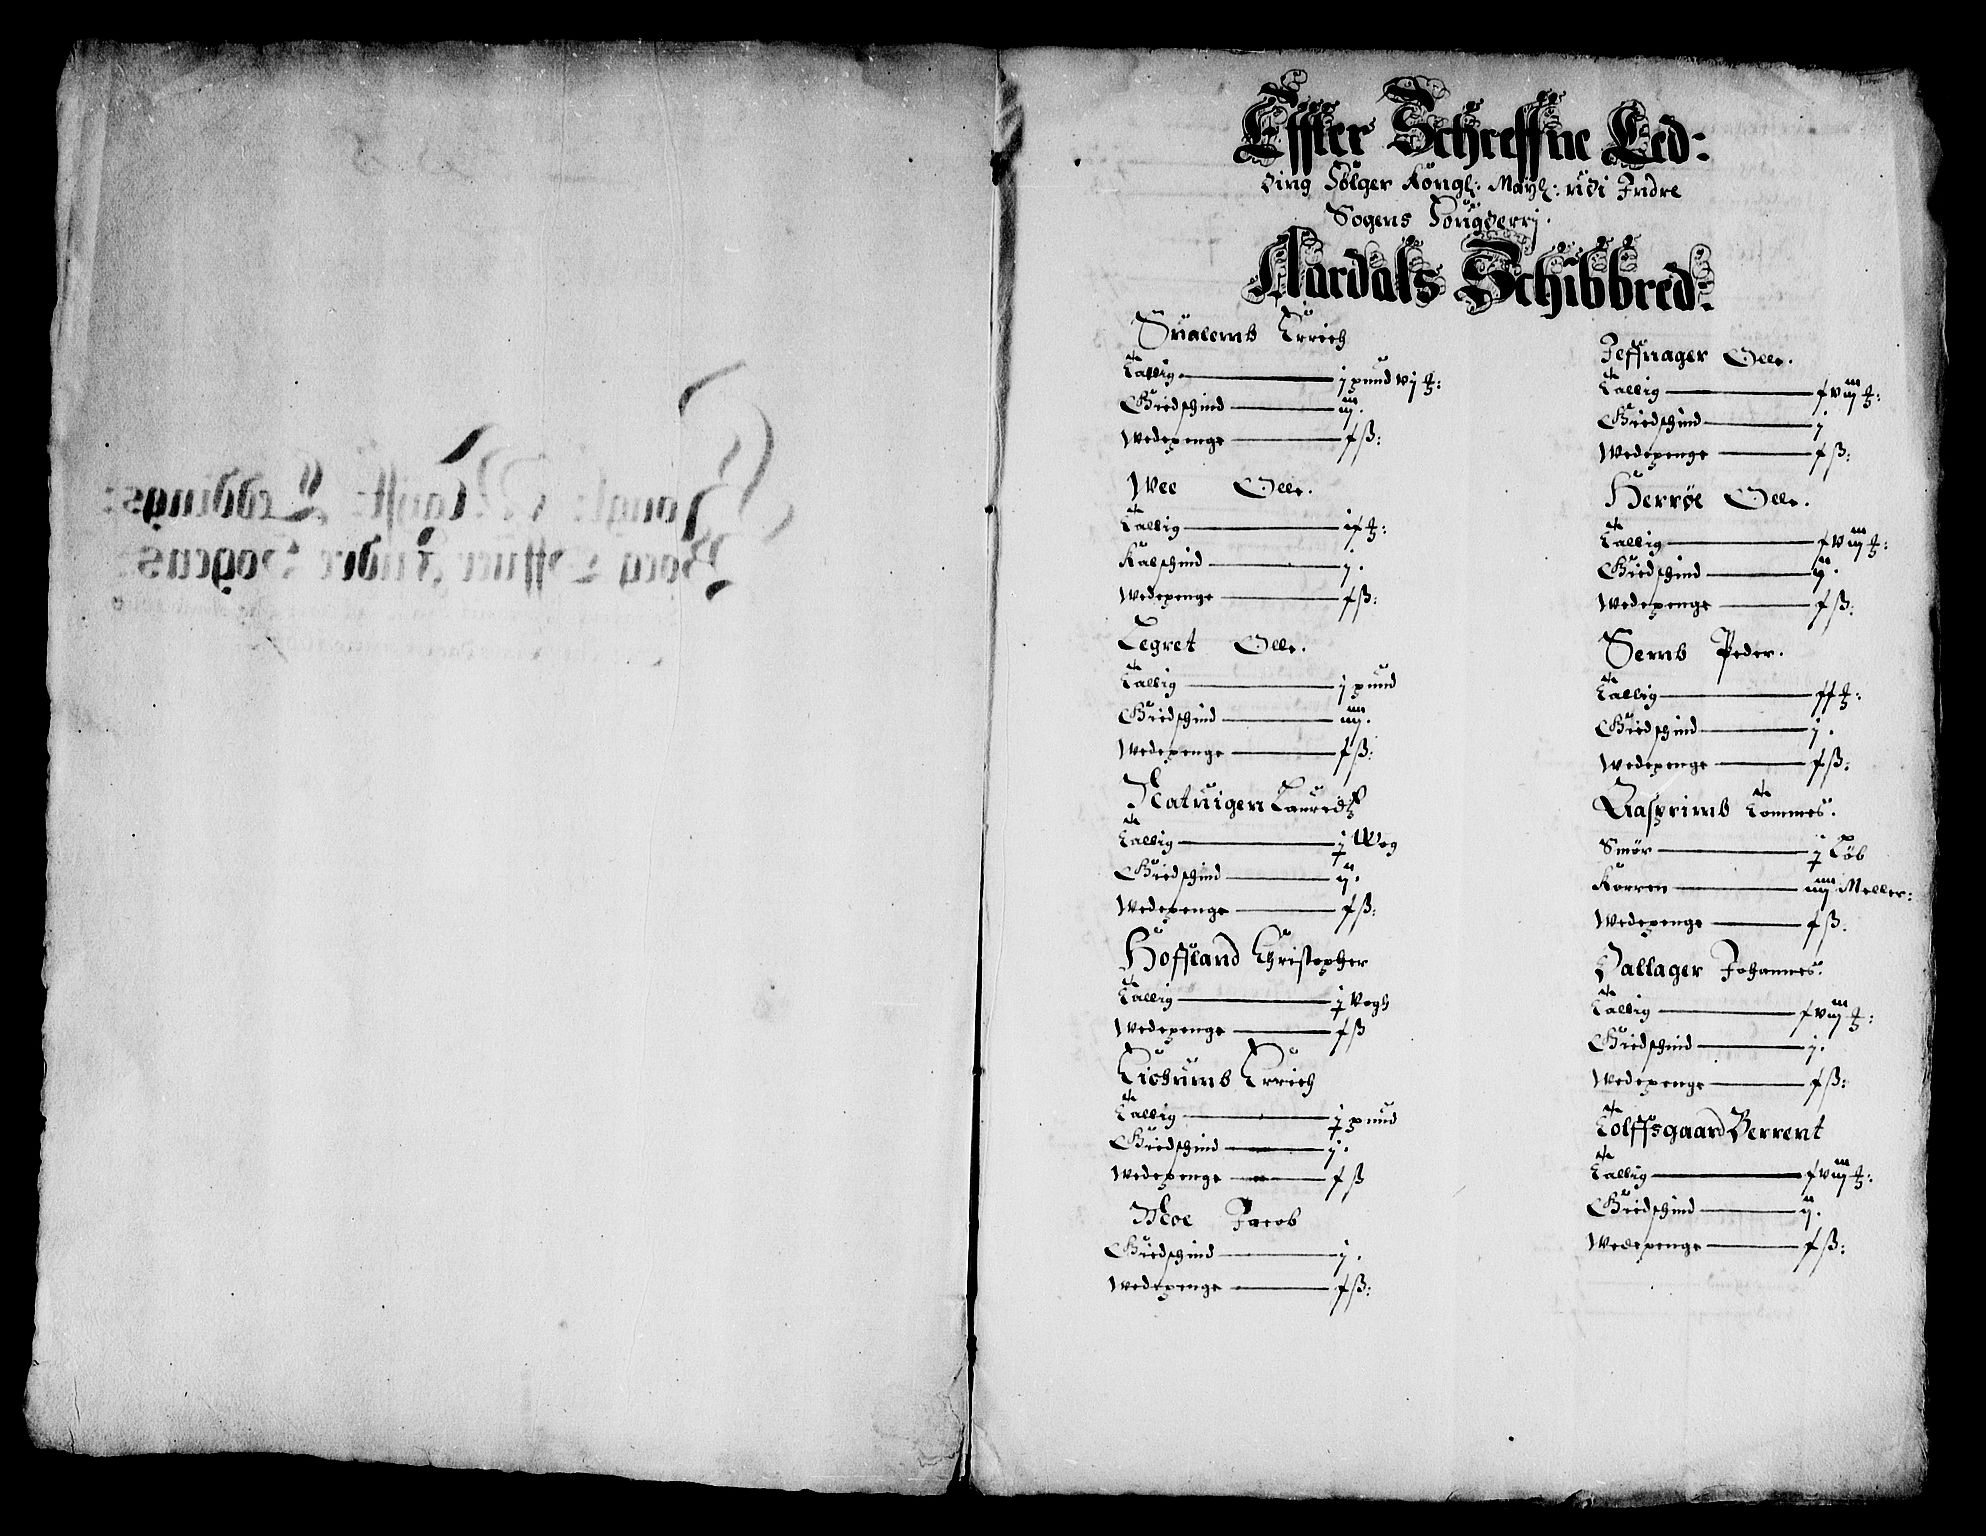 Effter Schreffne Led:
ding Følger Kongl: Mayt: udi Indre
Sogens Fougderrij.
Aardals Schibbred:
Sualemb Errich
Tallig — j pund vj ℔:
Giedschind — iij.
Wedepenge — f ß:
Wee Olle.
Tallig — if ℔:
Kalschind — j.
Wedepenge — f ß:
Legret Olle.
Tallig — j pund
Giedschind — iiij.
Wedepenge — f ß:
Natuigen Lauredtz
Tallig — j Wog
Giedschind — ij.
Wedepenge — f ß:
Hoffland Christopher
Tallig — j Vogh
Wedepenge — f ß
Errich
Tallig — j pund
Giedschind — j.
Wedepenge — f ß
Moe Jacob
Giedschind — j.
Wedepenge — f ß:
Jeffnager Olle.
Tallig — f viij ℔:
Giedschind — j
Wedepenge — f ß:
Herrøe Olle.
Tallig — f viij ℔:
Giedschind — ij.
Wedepenge — f ß:
Semb Peder.
Tallig — ff ℔:
Giedschind — j.
Wedepenge — f ß:
Gasprimb Tommes.
Smør — j Løb
Korren — iiij Meller:
Wedepenge — f ß.
Hallager Johannes.
Tallig — f viij ℔:
Giedschind — j.
Wedepenge — f ß:
Tolffsgaard Berrent
Tallig — f viij ℔:
Giedschind — ij.
Wedepenge — f ß: